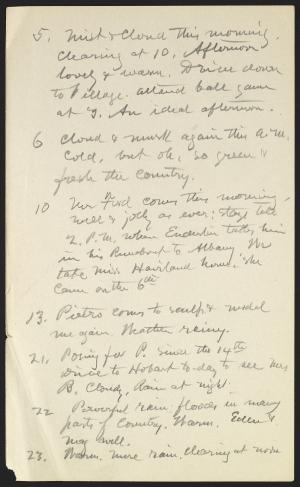 5. Mist & Cloud this morning.
Clearing at 10. Afternoon
lovely & warm. Drive down
to Village. attend ball game
at 3. An ideal afternoon.
6 Cloud & murk again this a.m.
Cold, but oh, so green &
fresh the country.
10 Mr Ford comes this morning,
well & jolly as ever; stays till
2. P.M. when Enderlin takes him
in his Runabout to Albany. We
take Miss Haviland home. She
came on the 6th
13. Pietro comes to sculpt & model
me again. Weather rainy.
21. Posing for P. since the 14th
drive to Hobart to-day to see Mrs
B. Cloudy, Rain at night.
22 Powerful rain, floods in many
parts of Country. Warm. Eden &
May call.
23. Warm. more rain, clearing at noon